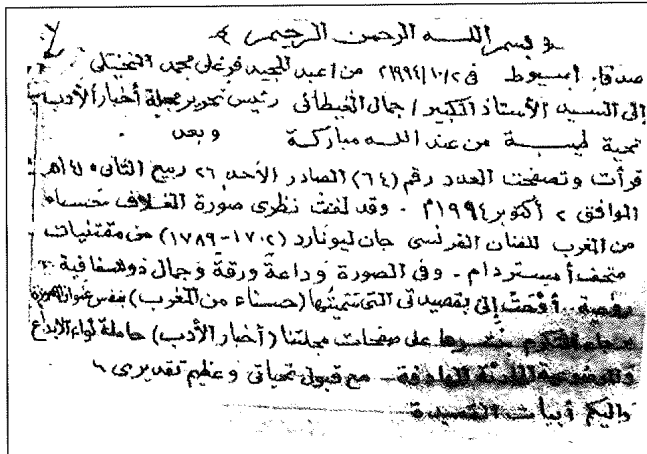 بسم الله الرحمن الرحيم
صدفا. أسيوط في ١٩٩٤/١٠/٢م من / عبد المجيد فرغلي محمد النخيلي
إلى السيد الأستاذ الكبير / جمال الغيطاني رئيس تحرير مجلة أخبار الأدب
تحية طيبة من عند الله مباركة وبعد
قرأت وتصفحت العدد رقم (٦٤) الصادر الأحد ٢٦ ربيع الثاني ١٤١٥هـ
الموافق ٢ أكتوبر ١٩٩٤م - وقد لفت نظري صورة الغلاف حسناء
من المغرب للفنان الفرنسي جان ليونارد (١٧٠٢-١٧٨٩) من مقتنيات
متحف أمستردام - وفي الصورة وداعة ورقة وجمال ذو شفافية
أوحت إلي بقصيدتي التي سميتها (حسناء من المغرب) بنفس عنوان الصورة
على صفحات مجلتنا (أخبار الأدب) حاملة لواء الإبداع
مع قبول تحياتي وعظيم تقديري
وإليكم أبيات القصيدة